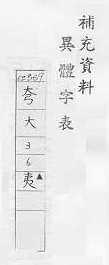 補充資料
異體字表
夸
大
3
6
夷▲